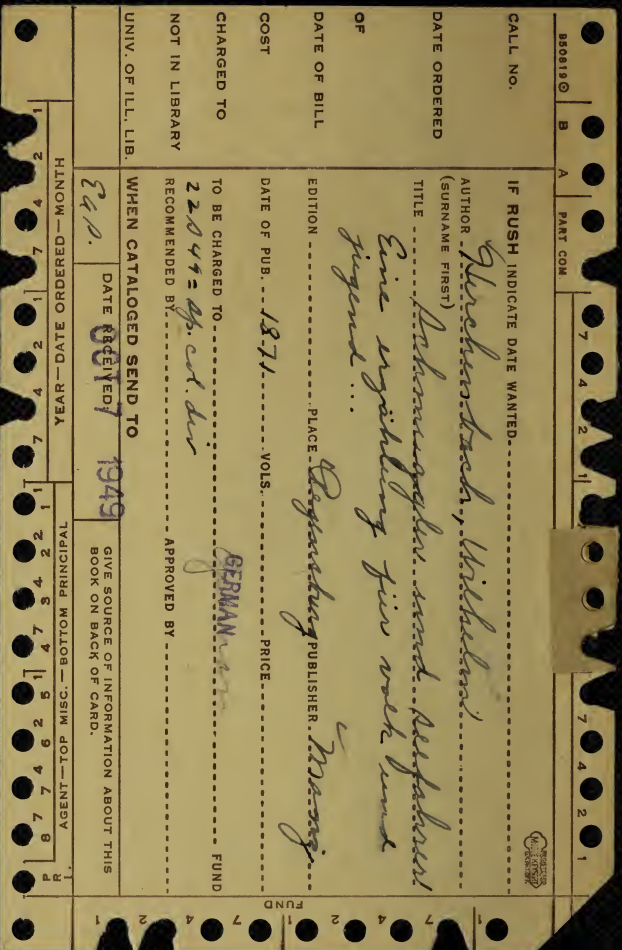 850819 B A PART COM
7 4 2 1 7 4 2 1
CALL NO.
DATE ORDERED
OF
DATE OF BILL
COST
CHARGED TO
NOT IN LIBRARY
UNIV. OF ILL. LIB.
IF RUSH INDICATE DATE WANTED
AUTHOR Herchenbach, Wilhelm.
(SURNAME FIRST)
TITLE Schmuggler und seefahrer!
Eine erzählung für volk und
jugend ...
EDITION PLACE Regensburg PUBLISHER Manz
DATE OF PUB. 1871 VOLS. PRICE
GERMAN
TO BE CHARGED TO FUND
22049 = sp. col. div
RECOMMENDED BY APPROVED BY
WHEN CATALOGED SEND TO
DATE RECEIVED:
OCT 7 1949
GIVE SOURCE OF INFORMATION ABOUT THIS
BOOK ON BACK OF CARD.
YEAR—DATE ORDERED—MONTH
AGENT—TOP MISC.—BOTTOM PRINCIPAL
P
R I.
1 2 4 7 1 2 4 7 1 1 2 2 3 4 4 7 5 1 6 2 7 4 8 7
FUND
1 2 4 7 1 2 4 7 1